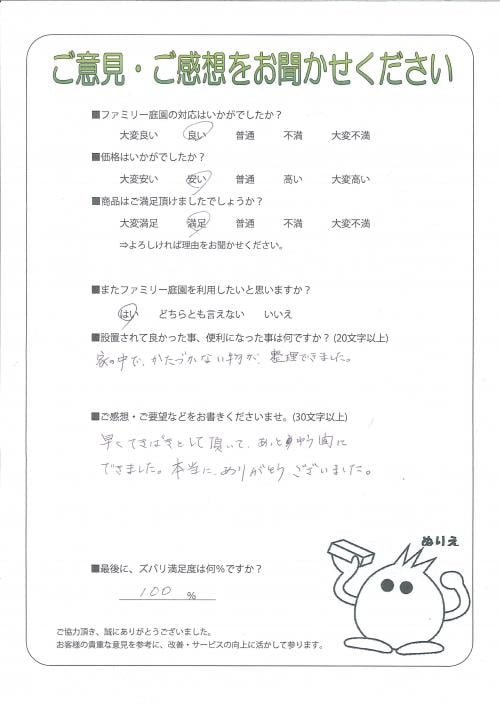 ご意見・ご感想をお聞かせください
■ファミリー庭園の対応はいかがでしたか？
大変良い 良い 普通 不満 大変不満
■価格はいかがでしたか？
大変安い 安い 普通 高い 大変高い
■商品はご満足頂けましたでしょうか？
大変満足 満足 普通 不満 大変不満
⇒よろしければ理由をお聞かせください。
■またファミリー庭園を利用したいと思いますか？
はい どちらとも言えない いいえ
■設置されて良かった事、便利になった事は何ですか？(20文字以上)
家の中で、かたづかない物が、整理できました。
■ご感想・ご要望などをお書きくださいませ。(30文字以上)
早くてきぱきとして頂いて、あっとゆう間に
できました。本当に、ありがとうございました。
ぬりえ
■最後に、ズバリ満足度は何％ですか？
100 ％
ご協力頂き、誠にありがとうございました。
お客様の貴重な意見を参考に、改善・サービスの向上に活かして参ります。